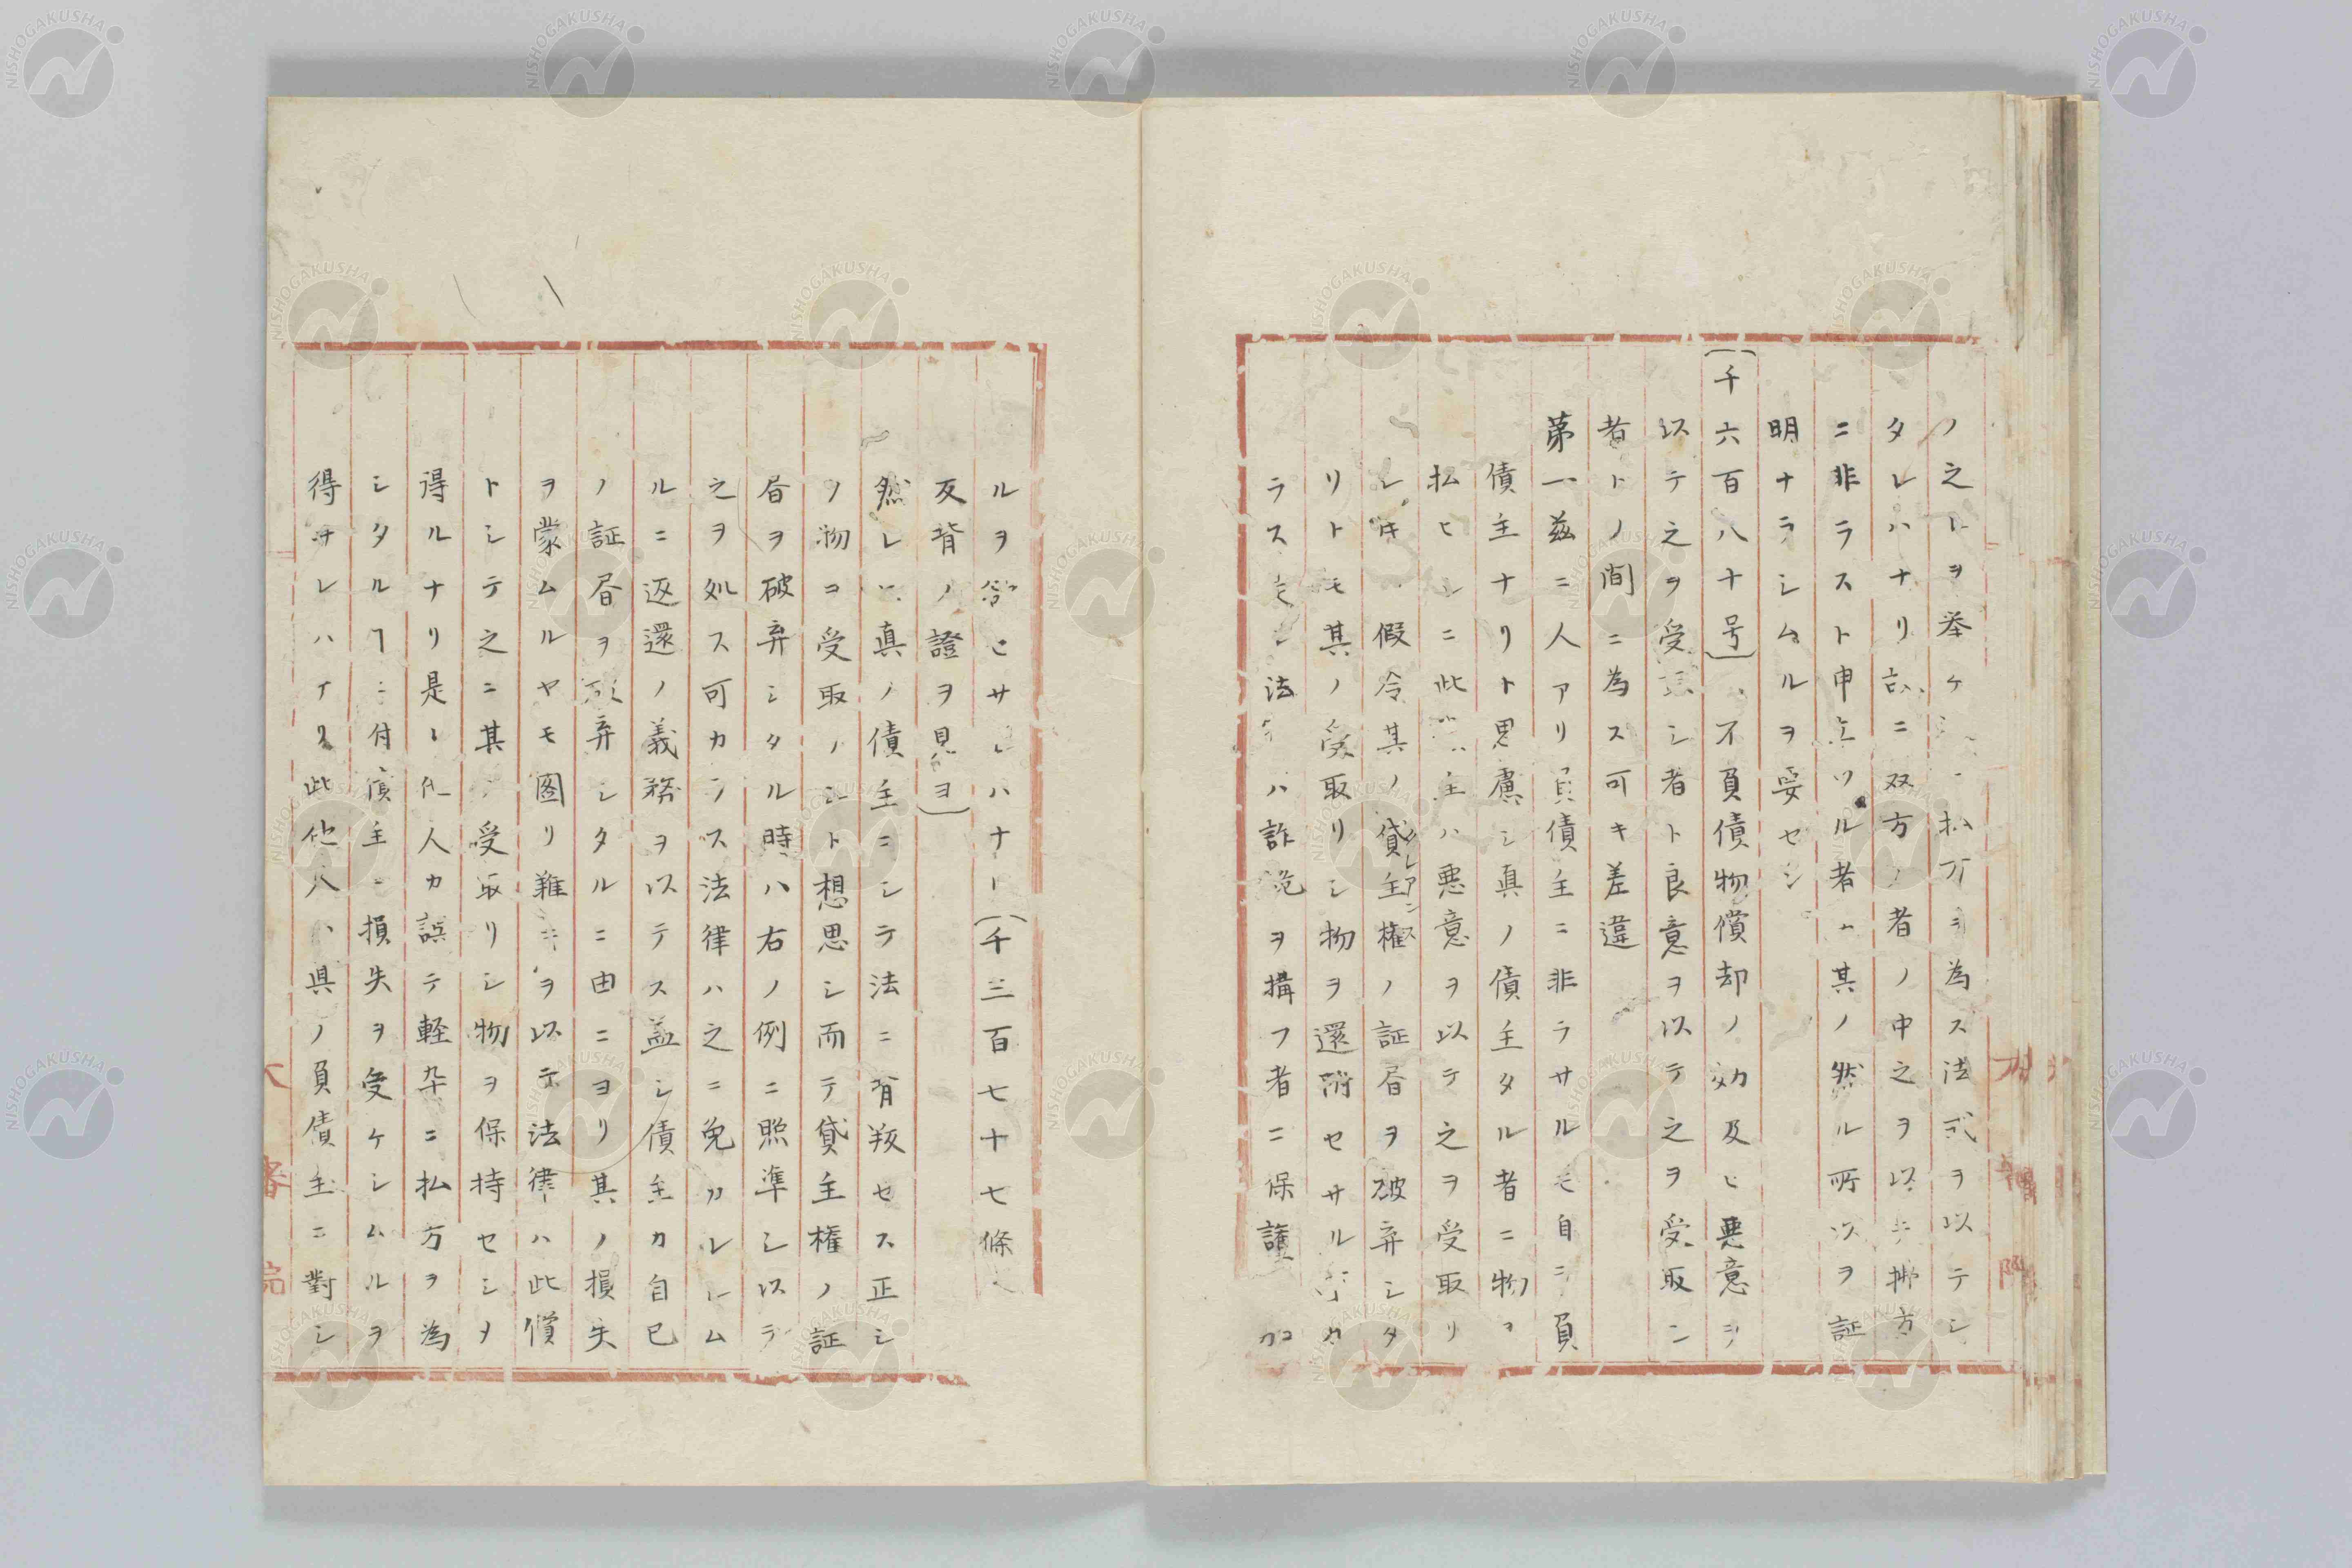 ノ之レヲ挙ケ払方ヲ為ス法式ヲ以テシ
タレハナリ故ニ双方ノ者ノ中之ヲ以テ払方
ニ非ラスト申立ツル者ハ其ノ然ル所以ヲ証
明ナラシムルヲ要セシ
(千六百八十号)不負債物償却ノ効及ヒ悪意ヲ
以テ之ヲ受取シ者ト良意ヲ以テ之ヲ受取シ
者トノ間ニ為ス可キ差違
第一茲ニ人アリ負債主ニ非ラサルモ自ラ負
債主ナリト思慮シ真ノ債主タル者ニ物ヲ
払ヒシニ此主ハ悪意ヲ以テ之ヲ受取リ
シ時假令其ノ貸主権ノ証書ヲ破弃シタ
クレアンス
リトモ其ノ受取リシ物ヲ還附セサル可カ
ラス法律ハ詐詭ヲ搆フ者ニ保護加
ルヲ欲セサレハナリ(千三百七十七條
反背ノ證ヲ見ヨ)
然レ真ノ債主ニシテ法ニ背叛セス正シ
ノ物ヲ受取ルト想思シ而テ貸主権ノ証
書ヲ破弃シタル時ハ右ノ例ニ照準シ以テ
之ヲ処ス可カラス法律ハ之ニ免カルレム
ルニ返還ノ義務ヲ以テス蓋シ債主カ自己
ノ証書ヲ破弃シタルニ由ニヨリ其ノ損失
ヲ蒙ムルヤモ図リ難キヲ以テ法律ハ此償
トシテ之ニ其ノ受取リシ物ヲ保持セシメ
得ルナリ是レ他人カ誤テ軽卒ニ払方ヲ為
シタルヿニ付債主ニ損失ヲ受ケシムルヲ
得サレハナリ此他人ハ具ノ負債主ニ對シ
NISHOGAKUSHA